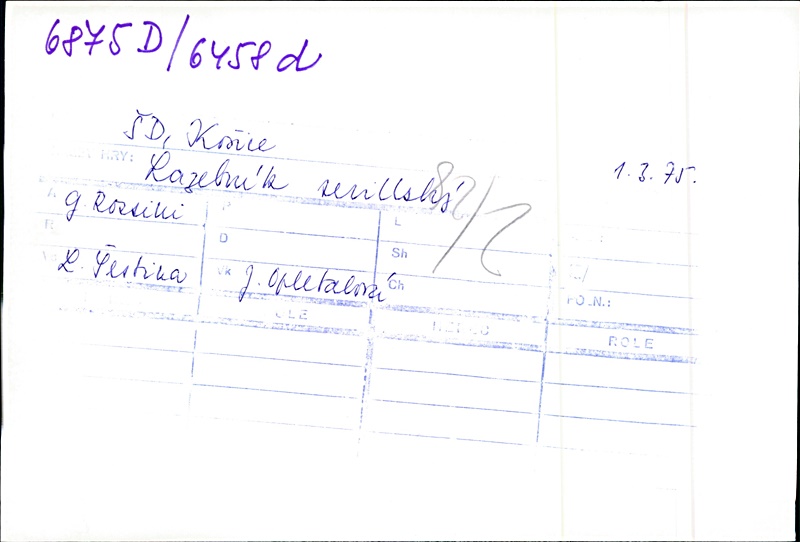 6875 D/6458 d
ŠD, Košice
HRY:
Lazebník sevillský
1. 3. 75.
82/2
A G. Rossini P L
R D Sh
L. Šestina Vk J. Opletalová Ch
POZN.:
ROLE
ROLE